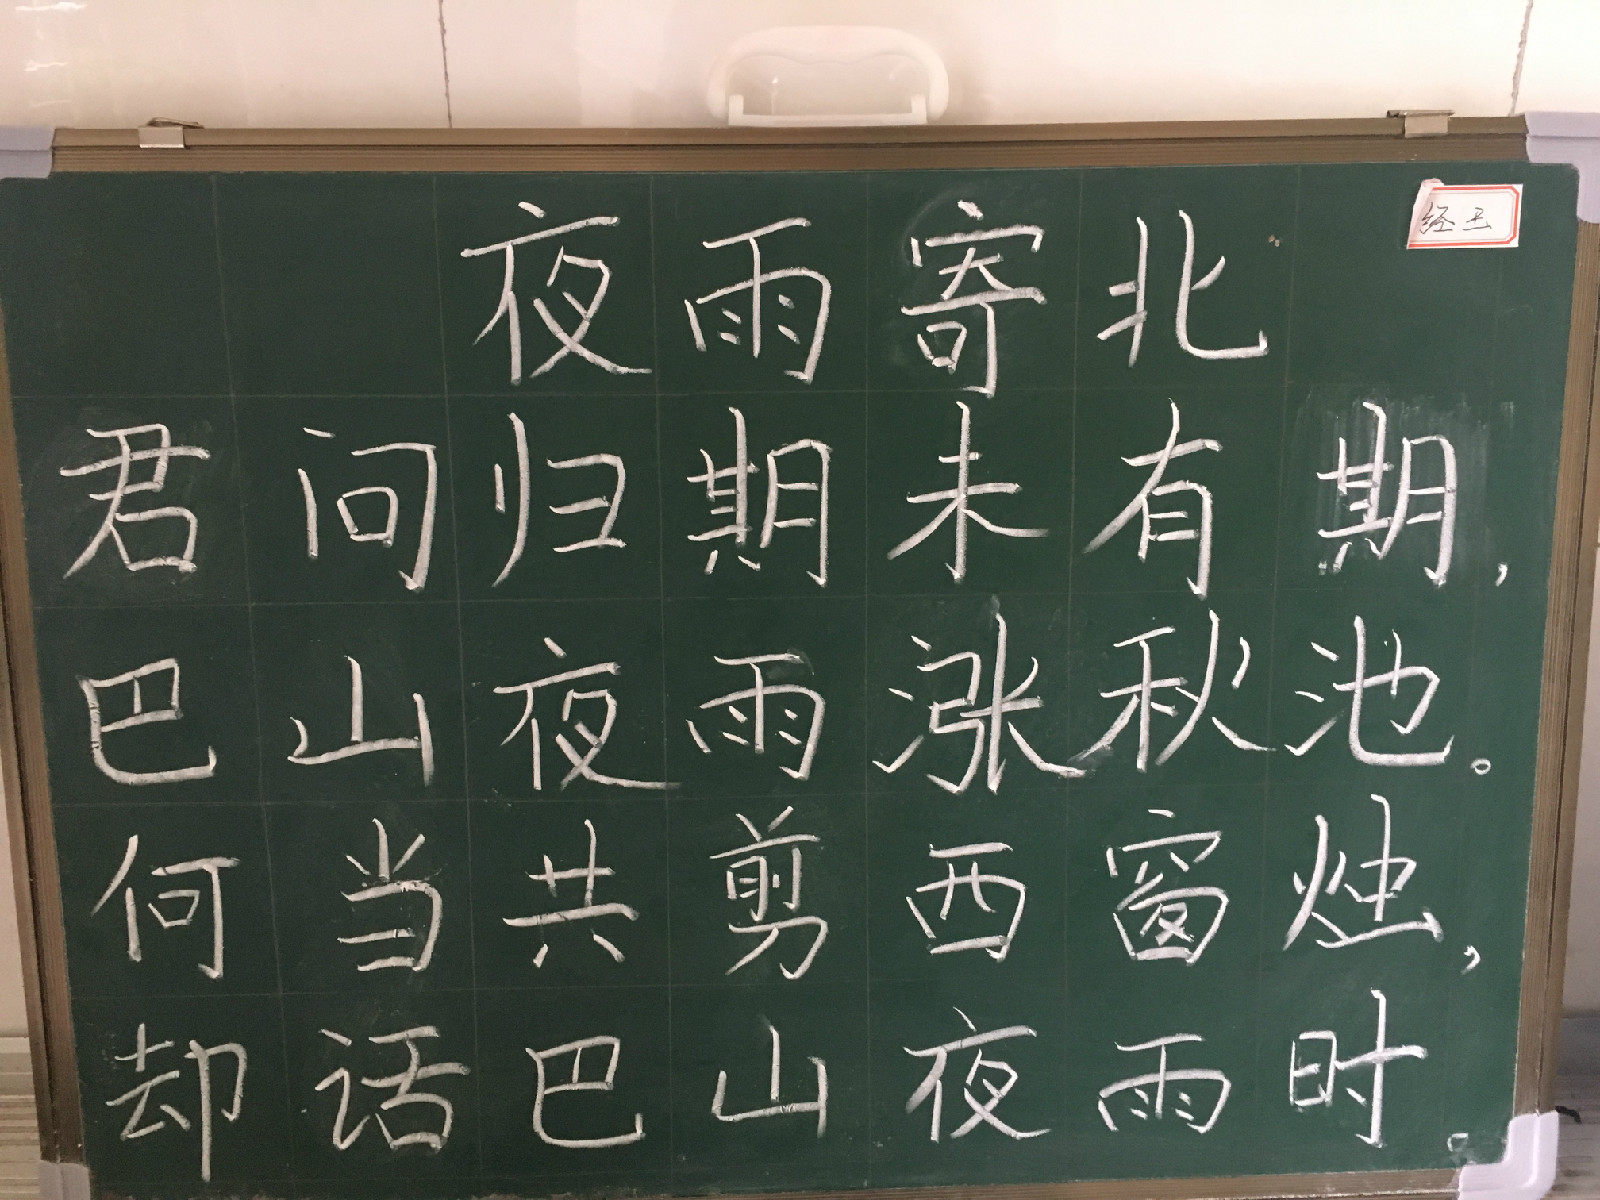 夜雨寄北
君问归期未有期，
巴山夜雨涨秋池。
何当共剪西窗烛，
却话巴山夜雨时。